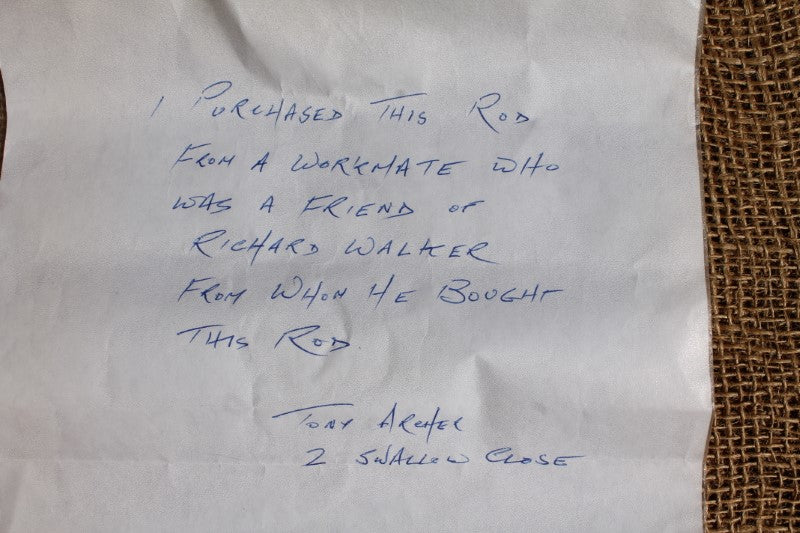 I PURCHASED THIS ROD
FROM A WORKMATE WHO
WAS A FRIEND OF
RICHARD WALKER
FROM WHOM HE BOUGHT
THIS ROD.
TONY ARCHER
2 SWALLOW CLOSE